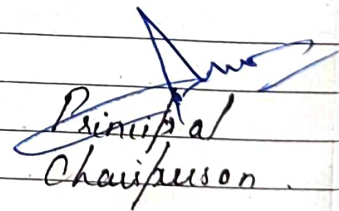 Principal
Chairperson.